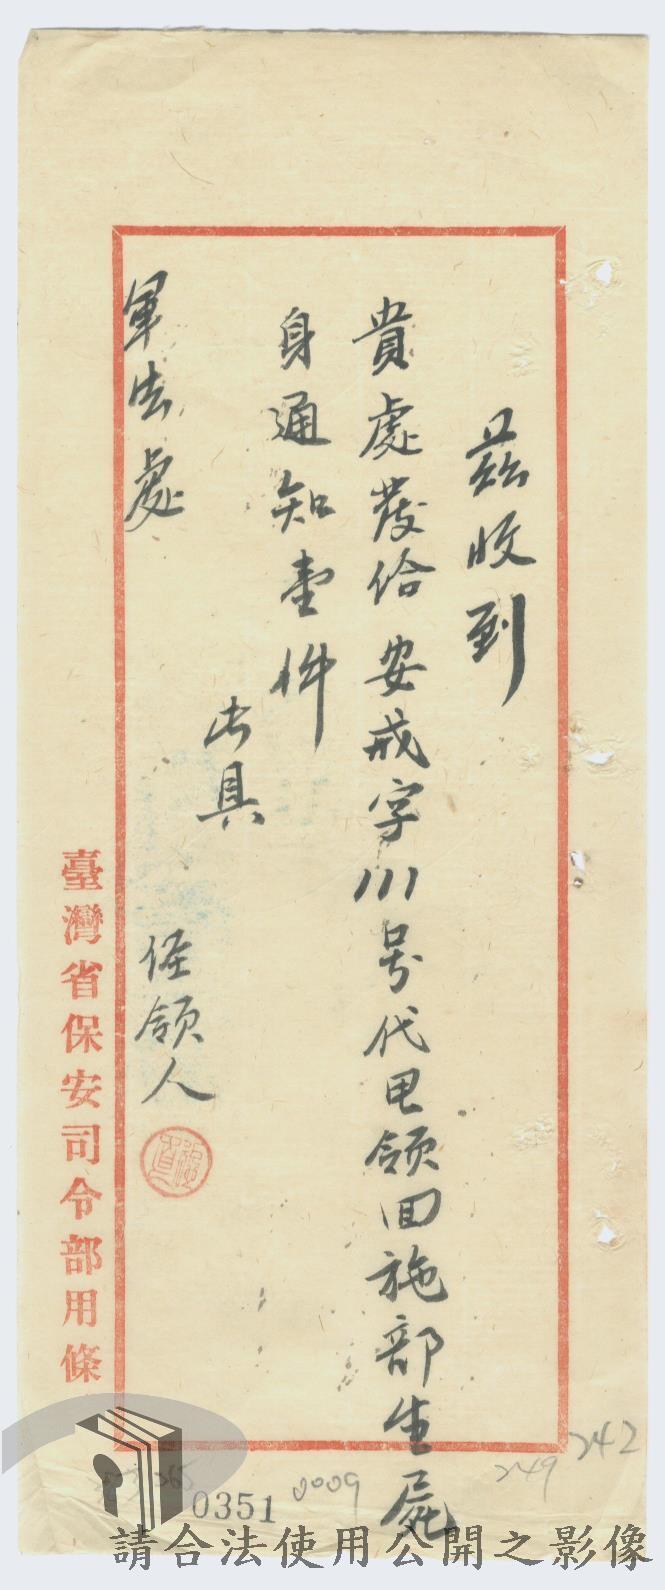 茲收到
貴處發給安戒字111号代电領回施部生屍
身通知壹件
此具
軍法處
經領人
臺灣省保安司令部用條
242
249
0009
265
0351
請合法使用公開之影像